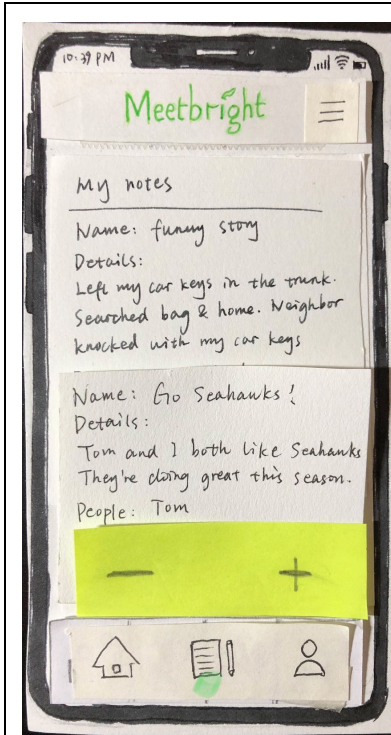 10:39 PM
Meetbright
My notes
Name: funny story
Details:
Left my car keys in the trunk.
Searched bag & home. Neighbor
knocked with my car keys
Name: Go Seahawks!
Details:
Tom and I both like Seahawks
They're doing great this season.
People: Tom